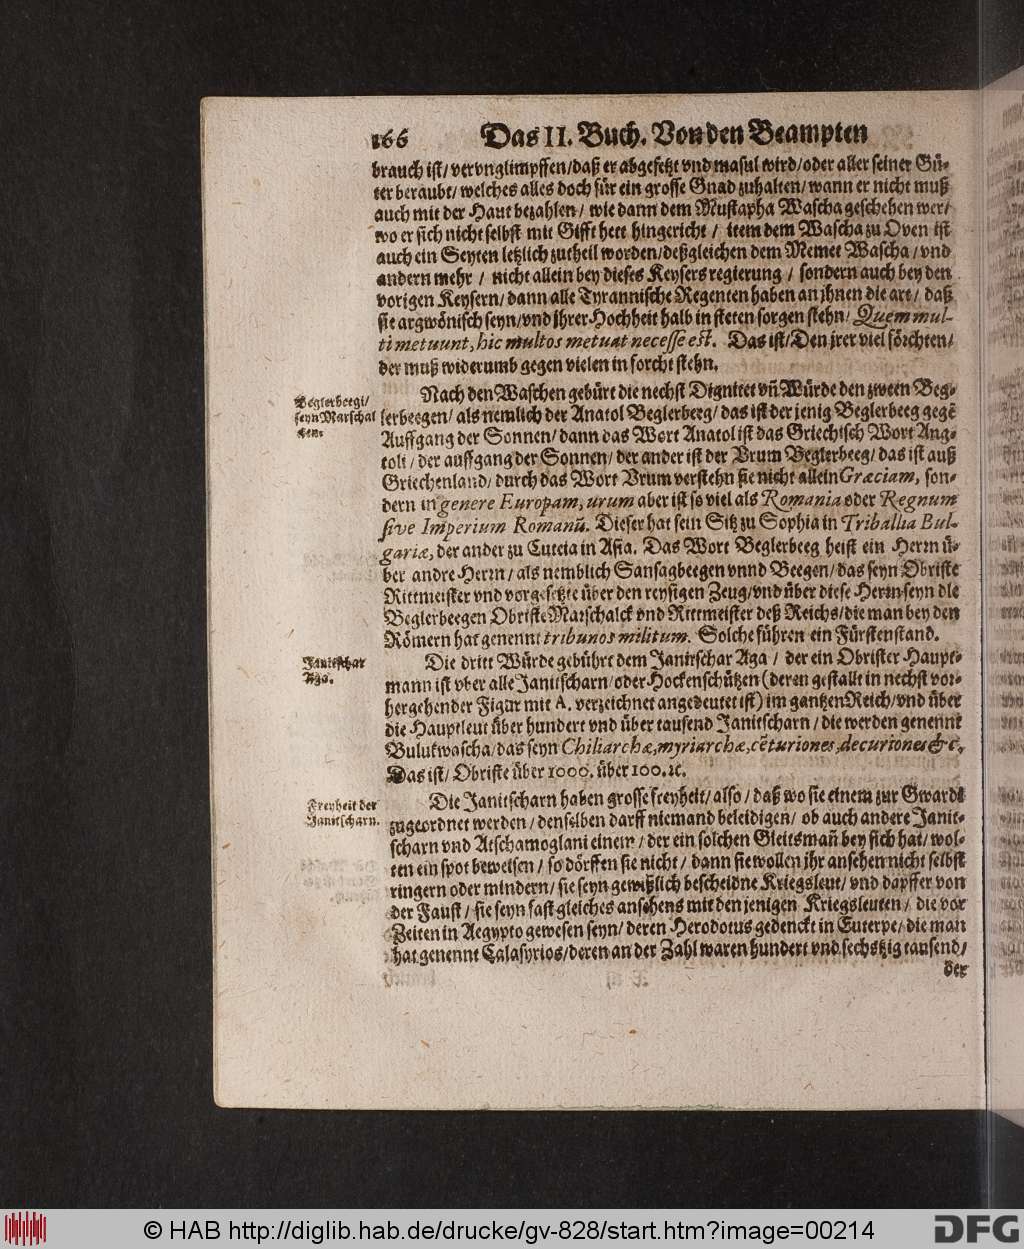 166 Das II. Buch. Von den Beampten
brauch ist/ vervnglimpffen/ daß er abgesetzt vnd masul wird/ oder aller seiner Gü-
ter beraubt/ welches alles doch für ein grosse Gnad zuhalten/ wann er nicht muß
auch mit der Haut bezahlen/ wie dann dem Mustapha Wascha geschehen wer/
wo er sich nicht selbst mit Gifft hett hingericht/ item dem Wascha zu Oven ist
auch ein Seyten letzlich zutheil worden/ deßgleichen dem Memet Wascha/ vnd
andern mehr/ nicht allein bey dieses Keysers regierung/ sondern auch bey den
vorigen Keysern/ dann alle Tyrannische Regenten haben an jhnen die art/ daß
sie argwönisch seyn/ vnd jhrer Hochheit halb in steten sorgen stehn/ Quem mul-
ti metuunt, hic multos metuat necesse est. Das ist/ Den jrer viel förchten/
der muß widerumb gegen vielen in forcht stehn.
Beglerbeegi/
seyn Marschal
cken.
Nach den Waschen gebürt die nechst Dignitet vñ Würde den zween Beg-
lerbeegen/ als nemlich der Anatol Beglerbeeg/ das ist der jenig Beglerbeeg gegē
Auffgang der Sonnen/ dann das Wort Anatol ist das Griechisch Wort Ang-
toli/ der auffgang der Sonnen/ der ander ist der Vrum Beglerbeeg/ das ist auß
Griechenland/ durch das Wort Vrum verstehn sie nicht allein Græciam, son-
dern in genere Europam, urum aber ist so viel als Romania oder Regnum
sive Imperium Romanū. Dieser hat sein Sitz zu Sophia in Triballia Bul-
gariæ, der ander zu Cuteia in Asia. Das Wort Beglerbeeg heist ein Herrn ü-
ber andre Herrn/ als nemblich Sansagbeegen vnnd Beegen/ das seyn Obriste
Rittmeister vnd vorgesetzte über den reysigen Zeug/ vnd über diese Herrn seyn die
Beglerbeegen Obriste Marschalck vnd Rittmeister deß Reichs/ die man bey den
Römern hat genennt tribunos militum. Solche führen ein Fürstenstand.
Janitschar
Aga.
Die dritt Würde gebührt dem Janitschar Aga/ der ein Obrister Haupt-
mann ist vber alle Janitscharn/ oder Hockenschützen (deren gestallt in nechst vor-
hergehender Figur mit A. verzeichnet angedeutet ist) im gantzen Reich/ vnd über
die Hauptleut über hundert vnd über tausend Janitscharn/ die werden genennt
Bulutwascha/ das seyn Chiliarchæ, myriarchæ, cēturiones, decuriones &c.
Das ist/ Obriste über 1000. über 100. ꝛc.
Freyheit der
Janitscharn.
Die Janitscharn haben grosse freyheit/ also/ daß wo sie einem zur Gwardi
zugeordnet werden/ denselben darff niemand beleidigen/ ob auch andere Janit-
scharn vnd Atschamoglani einem/ der ein solchen Gleitsmañ bey sich hat/ wol-
ten ein spot beweisen/ so dörffen sie nicht/ dann sie wollen jhr ansehen nicht selbst
ringern oder mindern/ sie seyn gewißlich bescheidne Kriegsleut/ vnd dapffer von
der Faust/ sie seyn fast gleiches ansehens mit den jenigen Kriegsleuten/ die vor
Zeiten in Aegypto gewesen seyn/ deren Herodotus gedenckt in Euterpe/ die man
hat genennt Calasyrios/ deren an der Zahl waren hundert vnd sechszig tausend/
der
© HAB http://diglib.hab.de/drucke/gv-828/start.htm?image=00214
DFG